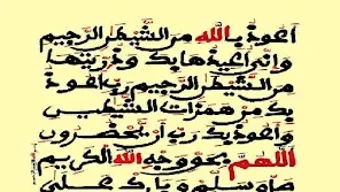 أعوذ بالله من الشيطان الرجيم
وإني أعيذها بك وذريتها
من الشيطان الرجيم رب أعوذ
بك من همزات الشيطين
وأعوذ بك رب أن يحضرون
اللهم بحق وجه الله الكريم
صل وسلم وبارك على